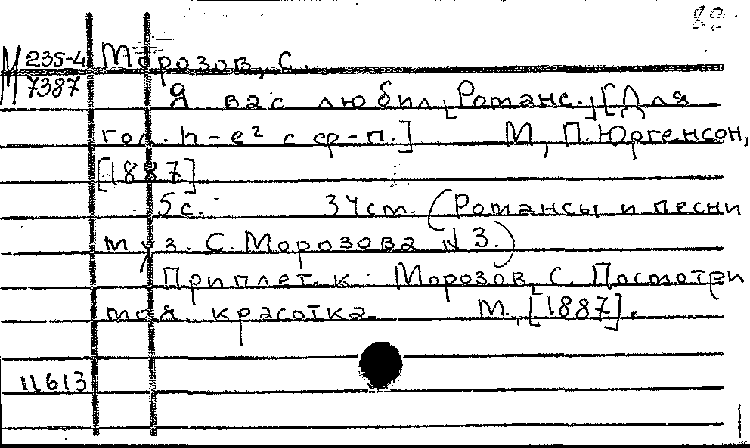 82
М 235-4 Морозов, С.
7387 Я вас любил. [Романс.] [Для
гол. h-e² с ср-п.] М., П. Юргенсон,
[1887]
5 с. 34 cm. (Романсы и песни
муз. С. Морозова N 3.)
Приплет. к: Морозов, С. Посмотри
моя красотка М., [1887].
11613